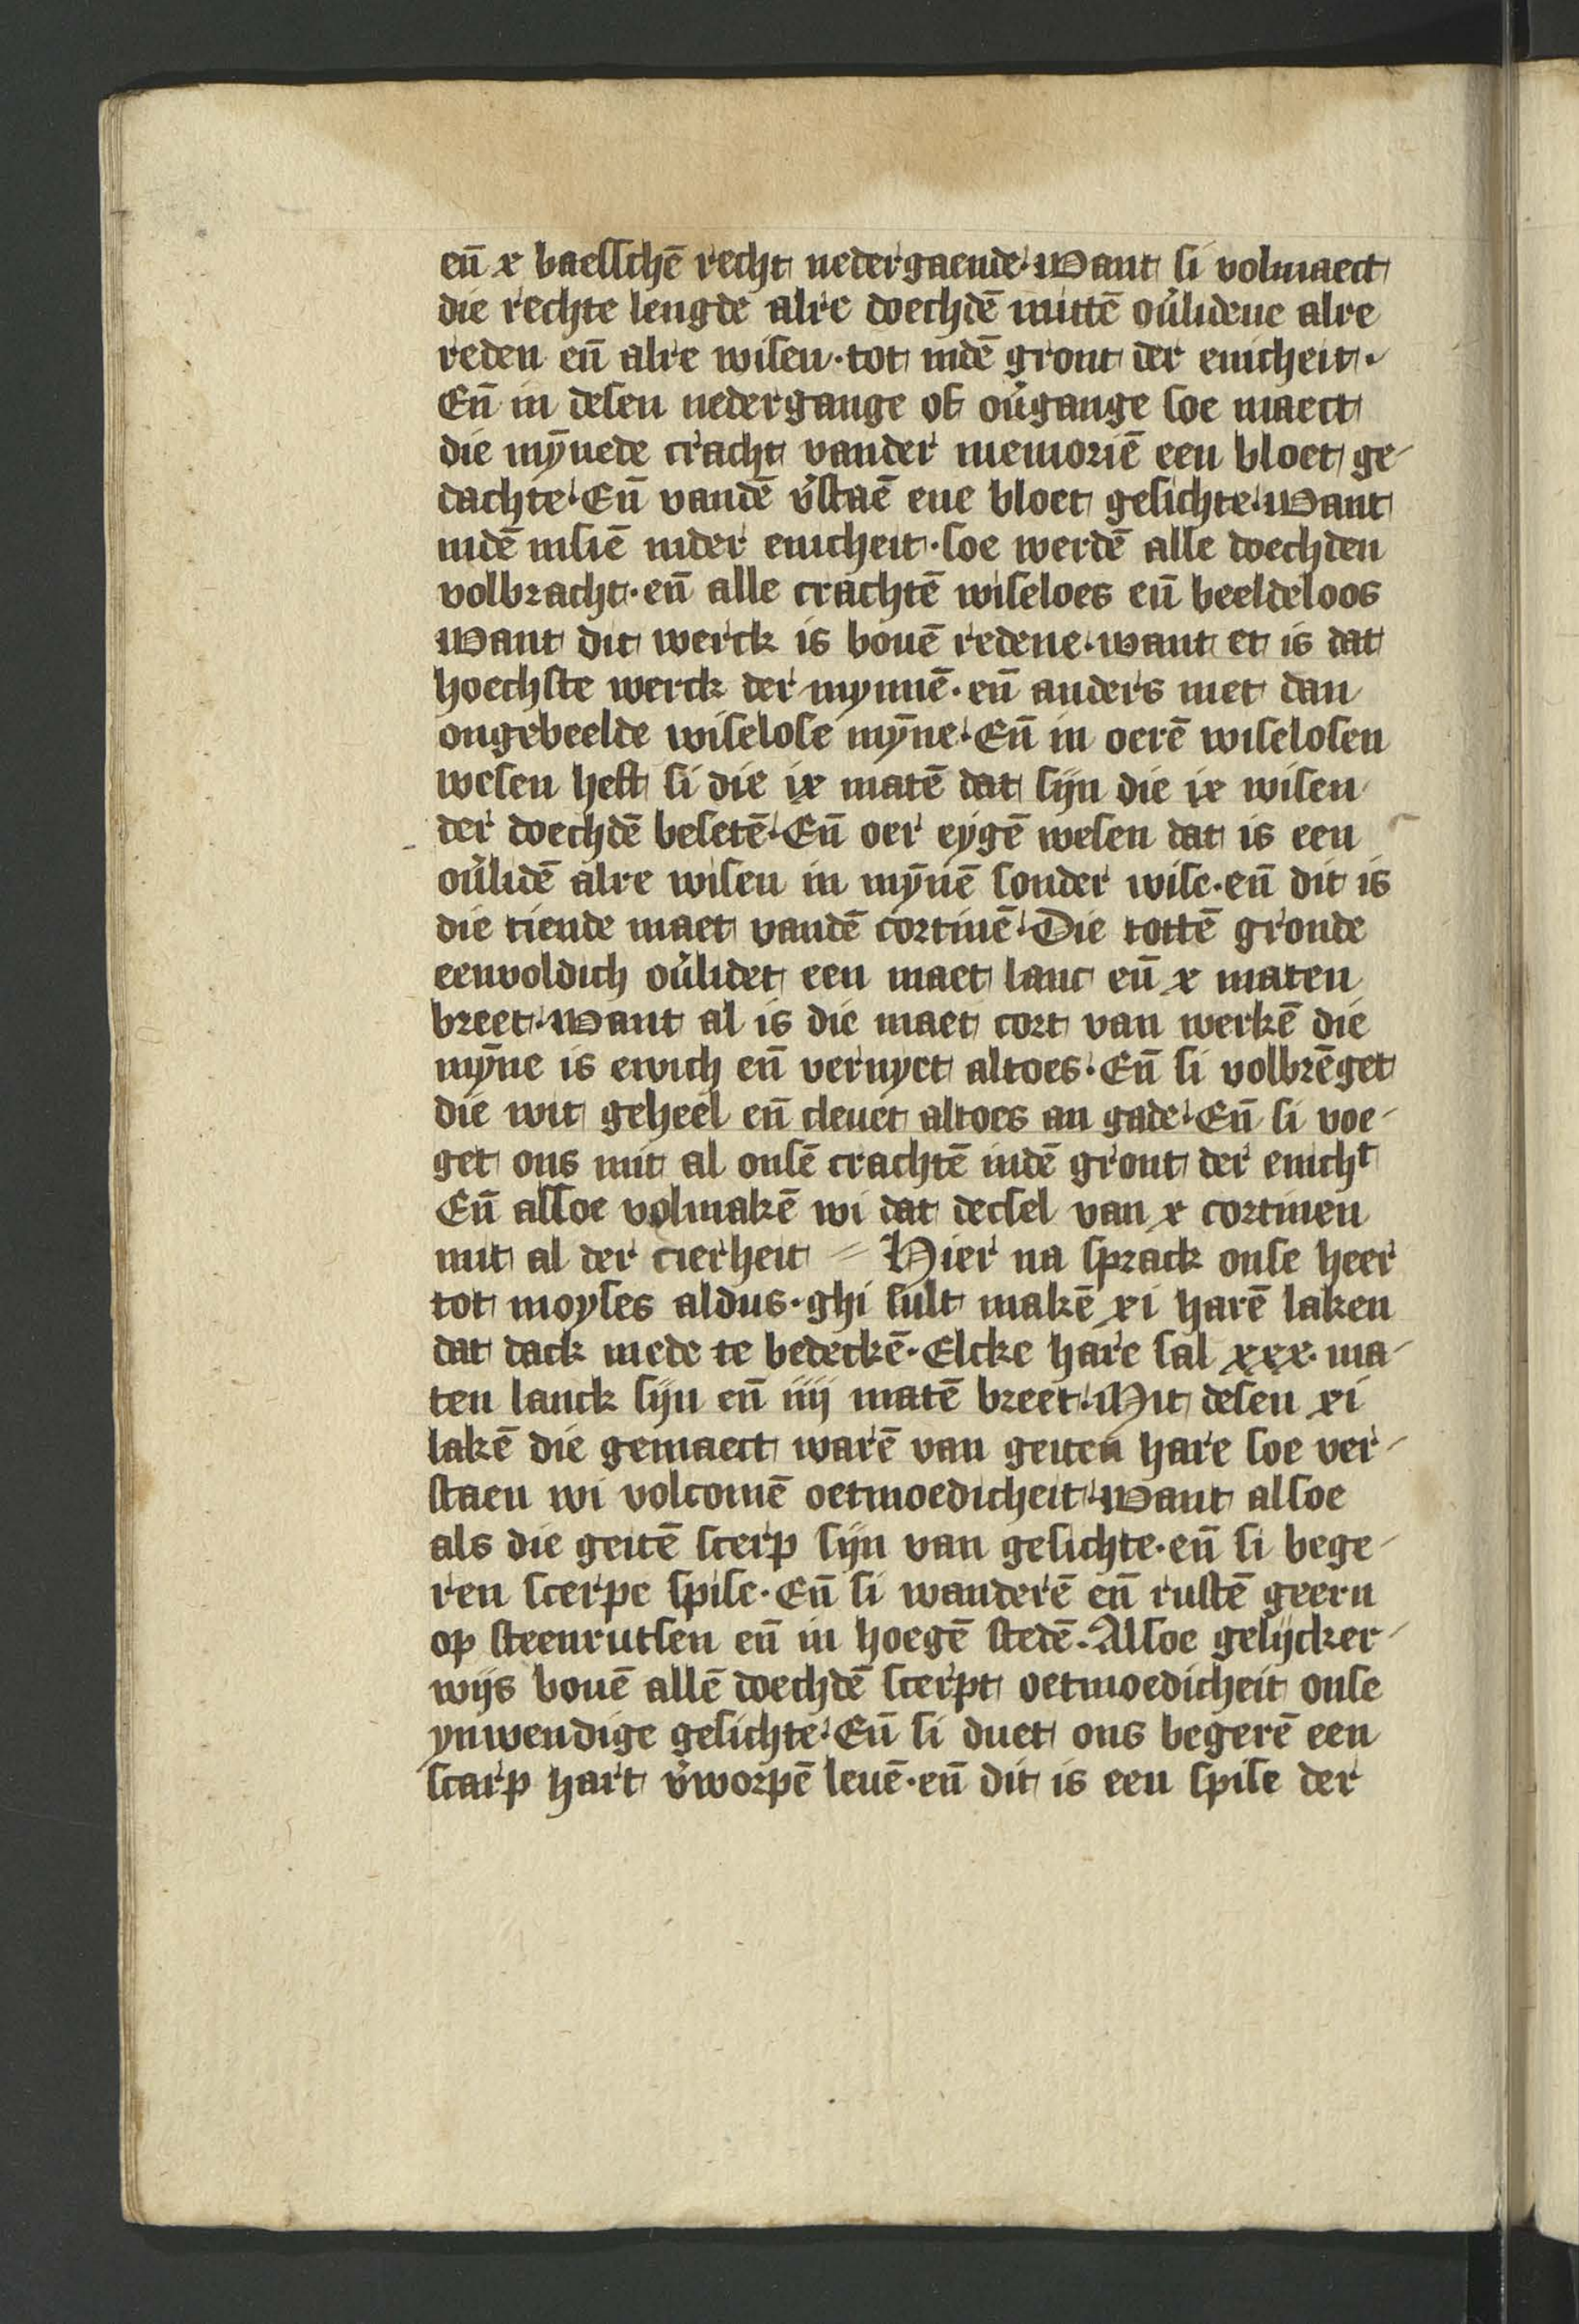 eñ x baelſchē recht nedergaende· Want ſi volmaect
die rechte lengde alre doechdē mittē ou̓lidene alre
reden eñ alre wiſen · tot indē gront der enicheit ·
Eñ in deſen nedergange of ou̓gange ſoe maect
die mȳnede cracht vander memoriē een bloet ge-
dachte· Eñ vandē v̓ſtaē ene bloet geſichte· Want
indē inſiē inder enicheit · ſoe werdē alle doechden
volbracht · eñ alle crachtē wiſeloes eñ beeldeloos
Want dit werck is bouē redene · want et is dat
hoechſte werck der mynnē · eñ anders niet dan
ongebeelde wiſeloſe mȳne· Eñ in oerē wiſeloſen
weſen heft ſi die ix matē dat ſijn die ix wiſen
der doechdē beſetē· Eñ oer eygē weſen dat is een
ou̓lidē alre wiſen in mȳnē ſonder wiſe · eñ dit is
die tiende maet vandē cortinē· Die tottē gronde
eenvoldich ou̓lidet een maet lanc eñ x maten
breet· Want al is die maet cort van werkē die
mȳne is ewich eñ vernyet altoes · Eñ ſi volbrēget
die wit geheel eñ cleuet altoes an gade· Eñ ſi voe-
get ons mit al onſē crachtē indē gront der enichᵗ
Eñ alſoe volmakē wi dat decſel van x cortinen
mit al der cierheit = Hier na ſprack onſe heer
tot moyſes aldus · ghi ſult makē xi harē laken
dat dack mede te bedeckē · Elcke hare ſal xxx · ma-
ten lanck ſijn eñ iiij matē breet· Mit deſen xi
lakē die gemaect warē van geiten hare ſoe ver-
ſtaen wi volcomē oetmoedicheit· Want alſoe
als die geitē ſcerp ſijn van geſichte · eñ ſi bege-
ren ſcerpe ſpiſe · Eñ ſi wanderē eñ ruſtē geern
op ſteenrutſen eñ in hoegē ſtedē · Alſoe gelijcker-
wijs bouē allē doechdē ſcerpt oetmoedicheit onſe
ynwendige geſichte· Eñ ſi duet ons begerē een
ſcarp hart v̓worpē leuē · eñ dit is een ſpiſe der